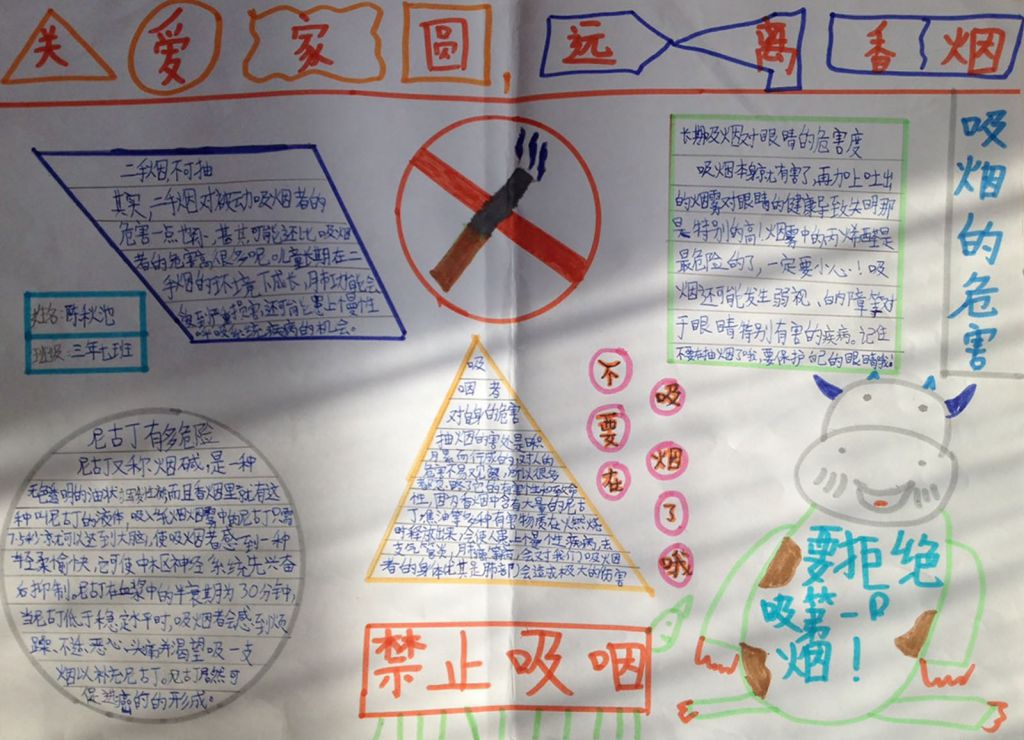 关爱家圆，远离香烟
二手烟不可抽
其实，二手烟对被动吸烟者的
危害一点也不小，甚其可能还比吸烟
者的危害高很多呢。儿童长期在二
手烟的环境下成长，肺功能会
受到严重损害还可能会患上慢性
呼吸系统疾病的机会。
姓名：陈秋池
班级：三年七班
长期吸烟对眼睛的危害度
吸烟本身就有害了，再加上吐出
的烟雾对眼睛的健康导致失明那
是特别的高！烟雾中的丙烯醛是
最危险的了，一定要小心！吸
烟还可能发生弱视、白内障等对
于眼睛特别有害的疾病。记住
不要在抽烟了哦，要保护自己的眼睛哦！
吸烟的危害
吸
烟者
对自身的危害
抽烟的害处是日积
月累而形成的，对人的
危害不易观察，所以很多
性，因为香烟中含有大量的尼古
丁焦油等多种有害物质在火燃烧
时释放出来，会使人患上慢性疾病，
支气管炎，肺癌等，会对我们吸烟
者的身体尤其是肺部会造成极大的伤害
不要在吸烟了哦
尼古丁有多危险
尼古丁又称烟碱，是一种
无色透明的油状挥发性液而且香烟里就有这
种叫尼古丁的液体，吸入
7.5秒就可以达到大脑，使吸烟者感到一种
轻柔愉快，它可使中枢区神经系统先兴奋
后抑制。尼古丁在血浆中的半衰期为30分钟，
当尼古丁低于稳定水平时，吸烟者会感到烦
躁、不适、恶心、头痛并渴望吸一支
烟以补充尼古丁。尼古丁居然可
促进癌的的形成。
禁止吸烟
要拒绝
吸第一口
烟！